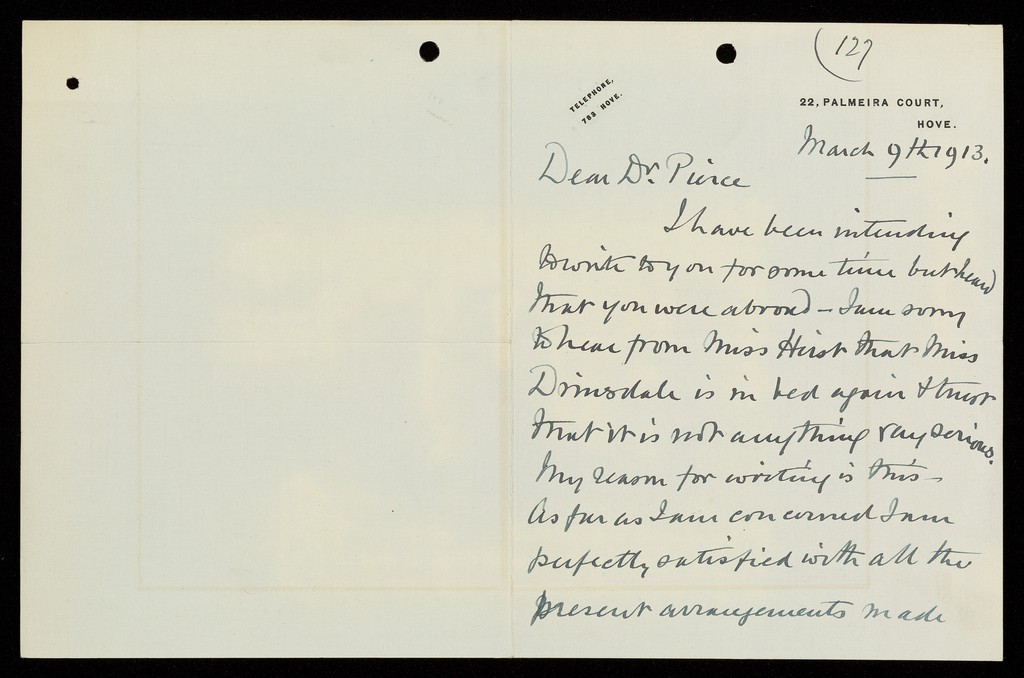 (127
TELEPHONE,
783 HOVE.
22, PALMEIRA COURT,
HOVE.
March 9th 1913.
Dear Dr. Pierce
I have been intending
to write to you for some time but heard
that you were abroad – I am sorry
to hear from Miss Hirst that Miss
Drimsdale is in bed again & trust
that it is not anything very serious.
My reason for writing is this –
As far as I am concerned I am
perfectly satisfied with all the
present arrangements made